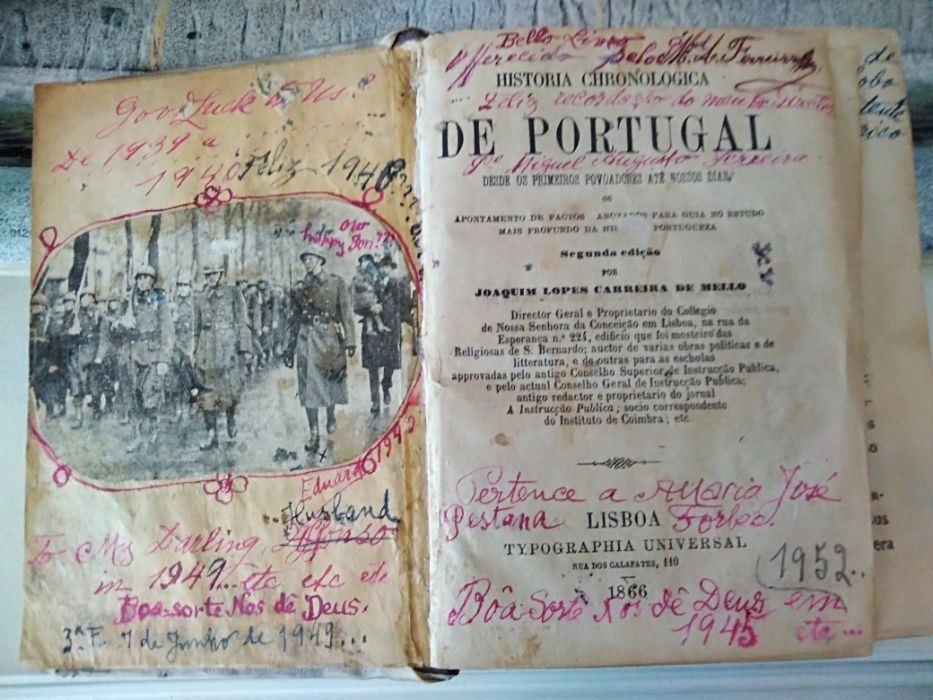 Good Luck to Us?
De 1939 a
1940 Feliz 1948
our
happy Son???
Eduardo 1942
Husband
To My Darling, Affonso
in 1949... etc etc etc
Boa-sorte Nos dê Deus.
3ª F. 7 de Junho de 1949...
Bello Livro
Offerecido Pelo Ferreira
HISTORIA CHRONOLOGICA
Feliz recordação do meu
DE PORTUGAL
Miguel Augusto Ferreira
DESDE OS PRIMEIROS POVOADORES ATÉ NOSSOS DIAS,
OU
APONTAMENTO DE FACTOS PARA GUIA NO ESTUDO
MAIS PROFUNDO DA HIS PORTUGUEZA
Segunda edição
POR
JOAQUIM LOPES CARREIRA DE MELLO
Director Geral e Proprietario do Collegio
de Nossa Senhora da Conceição em Lisboa, na rua da
Esperança n.º 224, edificio que foi mosteiro das
Religiosas de S. Bernardo; auctor de varias obras politicas e de
litteratura, e de outras para as escholas
approvadas pelo antigo Conselho Superior de Instrucção Publica,
e pelo actual Conselho Geral de Instrucção Publica;
antigo redactor e proprietario do jornal
A Instrucção Publica; socio correspondente
do Instituto de Coimbra; etc.
Pertence a Maria José
Pestana Forbes.
LISBOA
TYPOGRAPHIA UNIVERSAL
RUA DOS CALAFATES, 110
1866
1952..
Boa-Sorte Nos dê Deus em
1945 etc...